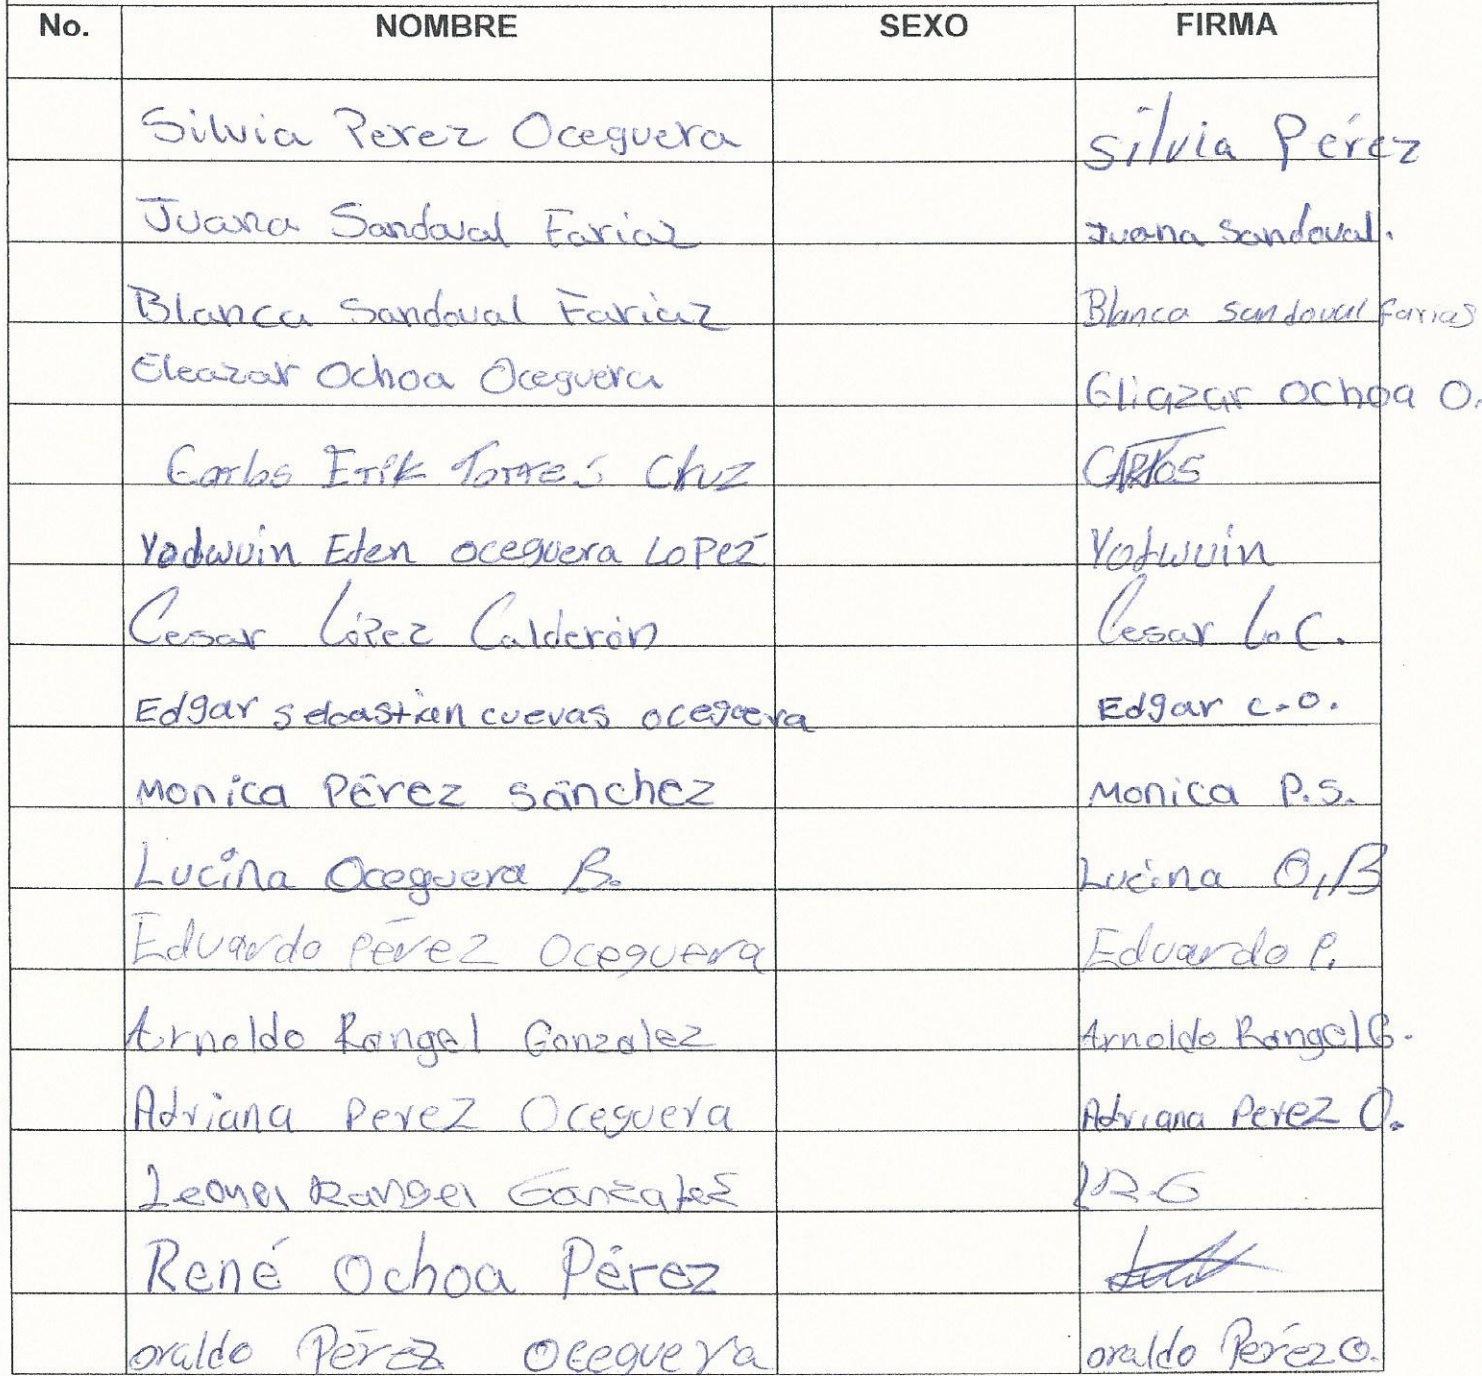 No. NOMBRE SEXO FIRMA
Silvia Perez Oceguera Silvia Pérez
Juana Sandoval Fariaz Juana Sandoval.
Blanca Sandoval Fariaz Blanca Sandoval farias
Eleazar Ochoa Oceguera Eliazar Ochoa O.
Carlos Erik Torres Cruz CARlos
Yodwuin Eden oceguera Lopez Yodwuin
Cesar López Calderón Cesar Lo C.
Edgar sebastian cuevas oceguera Edgar c.o.
Monica Pérez Sánchez Monica P.S.
Lucina Oceguera B. Lucina O,B
Eduardo Pérez Oceguera Eduardo P.
Arnoldo Rangel Gonzalez Arnoldo Rangel G.
Adriana Perez Oceguera Adriana Perez O.
Leonel Rangel Gonzalez LR.G
René Ochoa Pérez
oraldo Pérez Oceguera oraldo Pérez O.